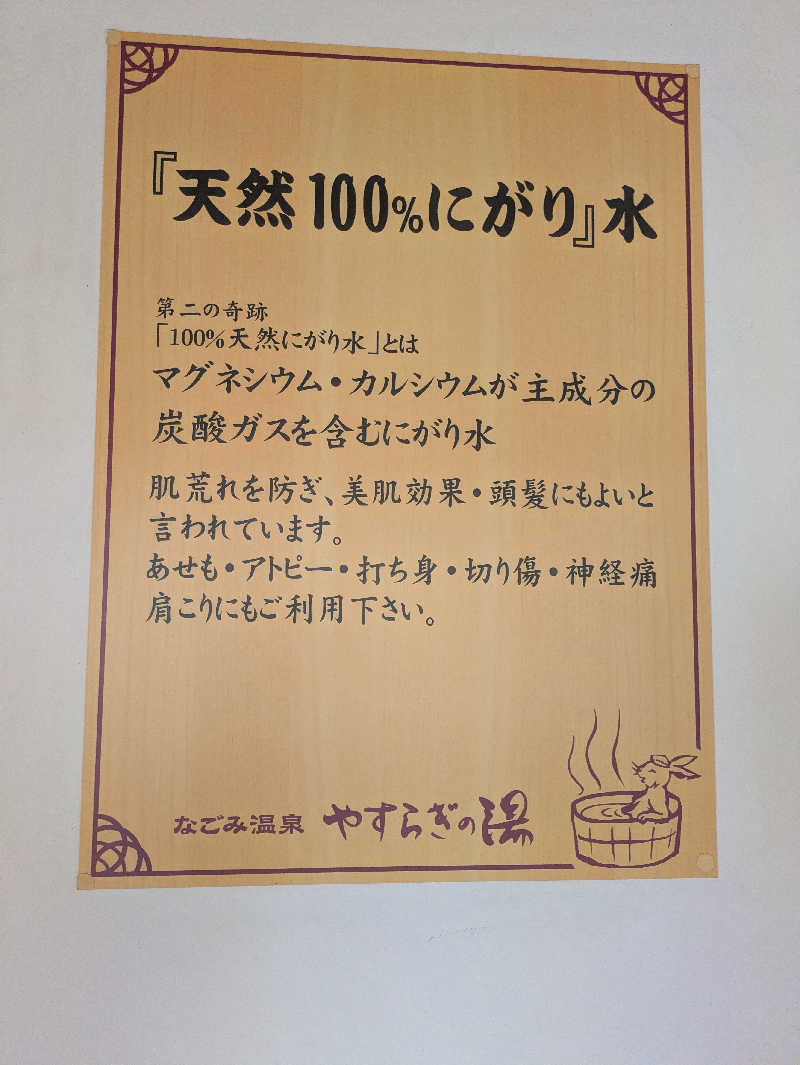 『天然100%にがり』水
第二の奇跡
「100%天然にがり水」とは
マグネシウム・カルシウムが主成分の
炭酸ガスを含むにがり水
肌荒れを防ぎ、美肌効果・頭髪にもよいと
言われています。
あせも・アトピー・打ち身・切り傷・神経痛
肩こりにもご利用下さい。
なごみ温泉 やすらぎの湯